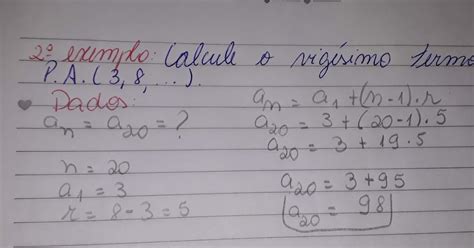 2º exemplo: Calcule o vigésimo termo
P.A. (3, 8, ...).
Dados:
an = a20 = ?
n = 20
a1 = 3
r = 8 - 3 = 5
an = a1 + (n - 1) . r
a20 = 3 + (20 - 1) . 5
a20 = 3 + 19 . 5
a20 = 3 + 95
a20 = 98